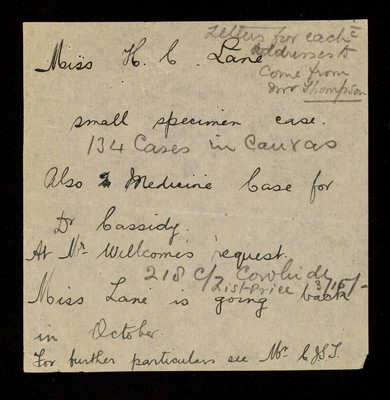 Letters for each
Miss H. C. Lane
addresses to
Come from
Mr Thompson
small specimen case.
134 Cases in Canvas
Also Medicine Case for
Dr Cassidy.
At Mr. Wellcome's request.
218 C/7 Cowhide
List Price 3/15/-
Miss Lane is going back
in October.
For further particulars see Mr. C.J.S.T.